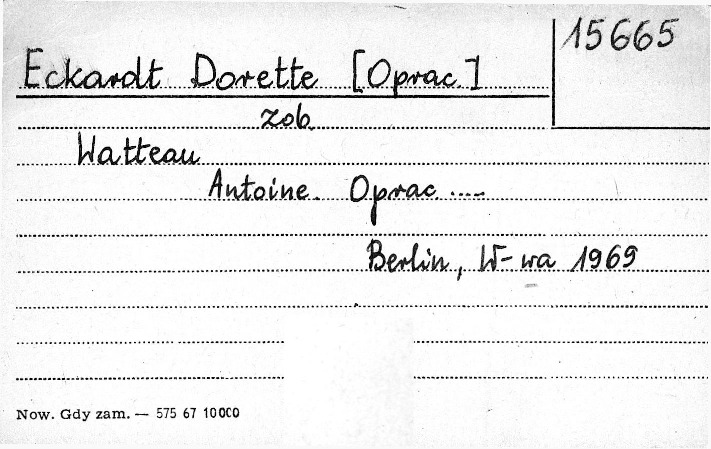 15665
Eckardt Dorette [Oprac.]
zob.
Watteau
Antoine. Oprac .....
Berlin, W-wa 1969
Now. Gdy zam. — 575 67 10000